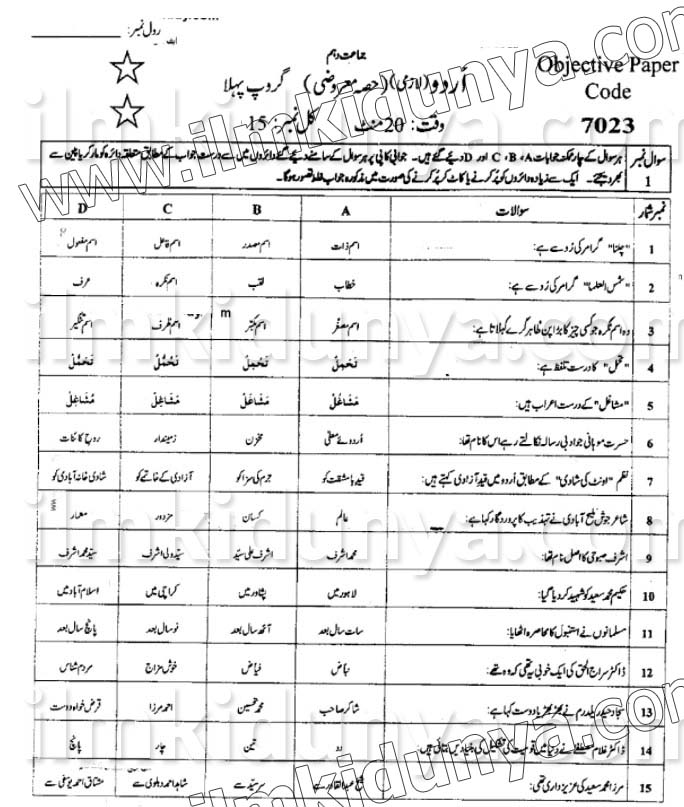 رول نمبر:
جماعت دہم
اُردو (لازمی) (حصہ معروضی) گروپ پہلا
Objective Paper
Code
7023
وقت: 20 منٹ کل نمبر: 15
سوال نمبر 1
ہر سوال کے چار ممکنہ جوابات A، B، C اور D دیے گئے ہیں۔ جوابی کاپی پر ہر سوال کے سامنے دیے گئے دائروں میں سے درست جواب کے مطابق متعلقہ دائرہ کو مارکر یا پین سے
بھر دیجئے۔ ایک سے زیادہ دائروں کو پُر کرنے یا کاٹ کر پُر کرنے کی صورت میں مذکورہ جواب غلط تصور ہوگا۔
نمبر شمار سوالات A B C D
1 "چلنا" گرامر کی رُو سے ہے: اسم ذات اسم مصدر اسم فاعل اسم مفعول
2 "شمس العلما" گرامر کی رُو سے ہے: خطاب لقب اسم نکرہ عرف
3 وہ اسم نکرہ جو کسی چیز کا بڑا پن ظاہر کرے کہلاتا ہے: اسم مصغّر اسم مکبّر اسم ظرف اسم تصغیر
4 "تحمل" کا درست تلفظ ہے: تَحْمِلْ تَحَمِلْ تَحَمُّلْ تَحْمُلْ
5 "مشاغل" کے درست اعراب ہیں: مَشَاغَلْ مَشَاغُلْ مَشَاغِلْ مُشَاغِلْ
6 حسرت موہانی جو ادبی رسالہ نکالتے رہے اس کا نام تھا: اُردوئے معلّٰی مخزن زمیندار روحِ کائنات
7 نظم "اونٹ کی شادی" کے مطابق اُردو میں قیدِ آزادی کہتے ہیں: قید بامشقت کو جرم کی سزا کو آزادی کے خاتمے کو شادی خانہ آبادی کو
8 شاعر جوش ملیح آبادی نے تہذیب کا پروردگار کہا ہے: عالم کسان مزدور معمار
9 اشرف صبوحی کا اصل نام تھا: محمد اشرف اشرف علی سیّد سیّد ولی اشرف سیّد محمد اشرف
10 حکیم محمد سعید کو شہید کر دیا گیا: لاہور میں پشاور میں کراچی میں اسلام آباد میں
11 مسلمانوں نے استنبول کا محاصرہ اٹھایا: سات سال بعد آٹھ سال بعد نو سال بعد پانچ سال بعد
12 ڈاکٹر سراج الحق کی ایک خوبی یہ تھی کہ وہ تھے: نباض فیاض خوش مزاج مردم شناس
13 سجاد حیدر یلدرم نے بھڑ بھڑیا دوست کہا ہے: شاکر صاحب محمد تحسین احمد مرزا قرض خواہ دوست
14 ڈاکٹر غلام مصطفےٰ نے دنیا میں قومیت کی تشکیل کی بنیادیں بتائی ہیں: دو تین چار پانچ
15 مرزا محمد سعید کی عزیز داری تھی: شیخ عبدالقادر سے سر سیّد سے شاہد احمد دہلوی سے مشتاق احمد یوسفی سے
www.ilmkidunya.com
ilmkidunya.com